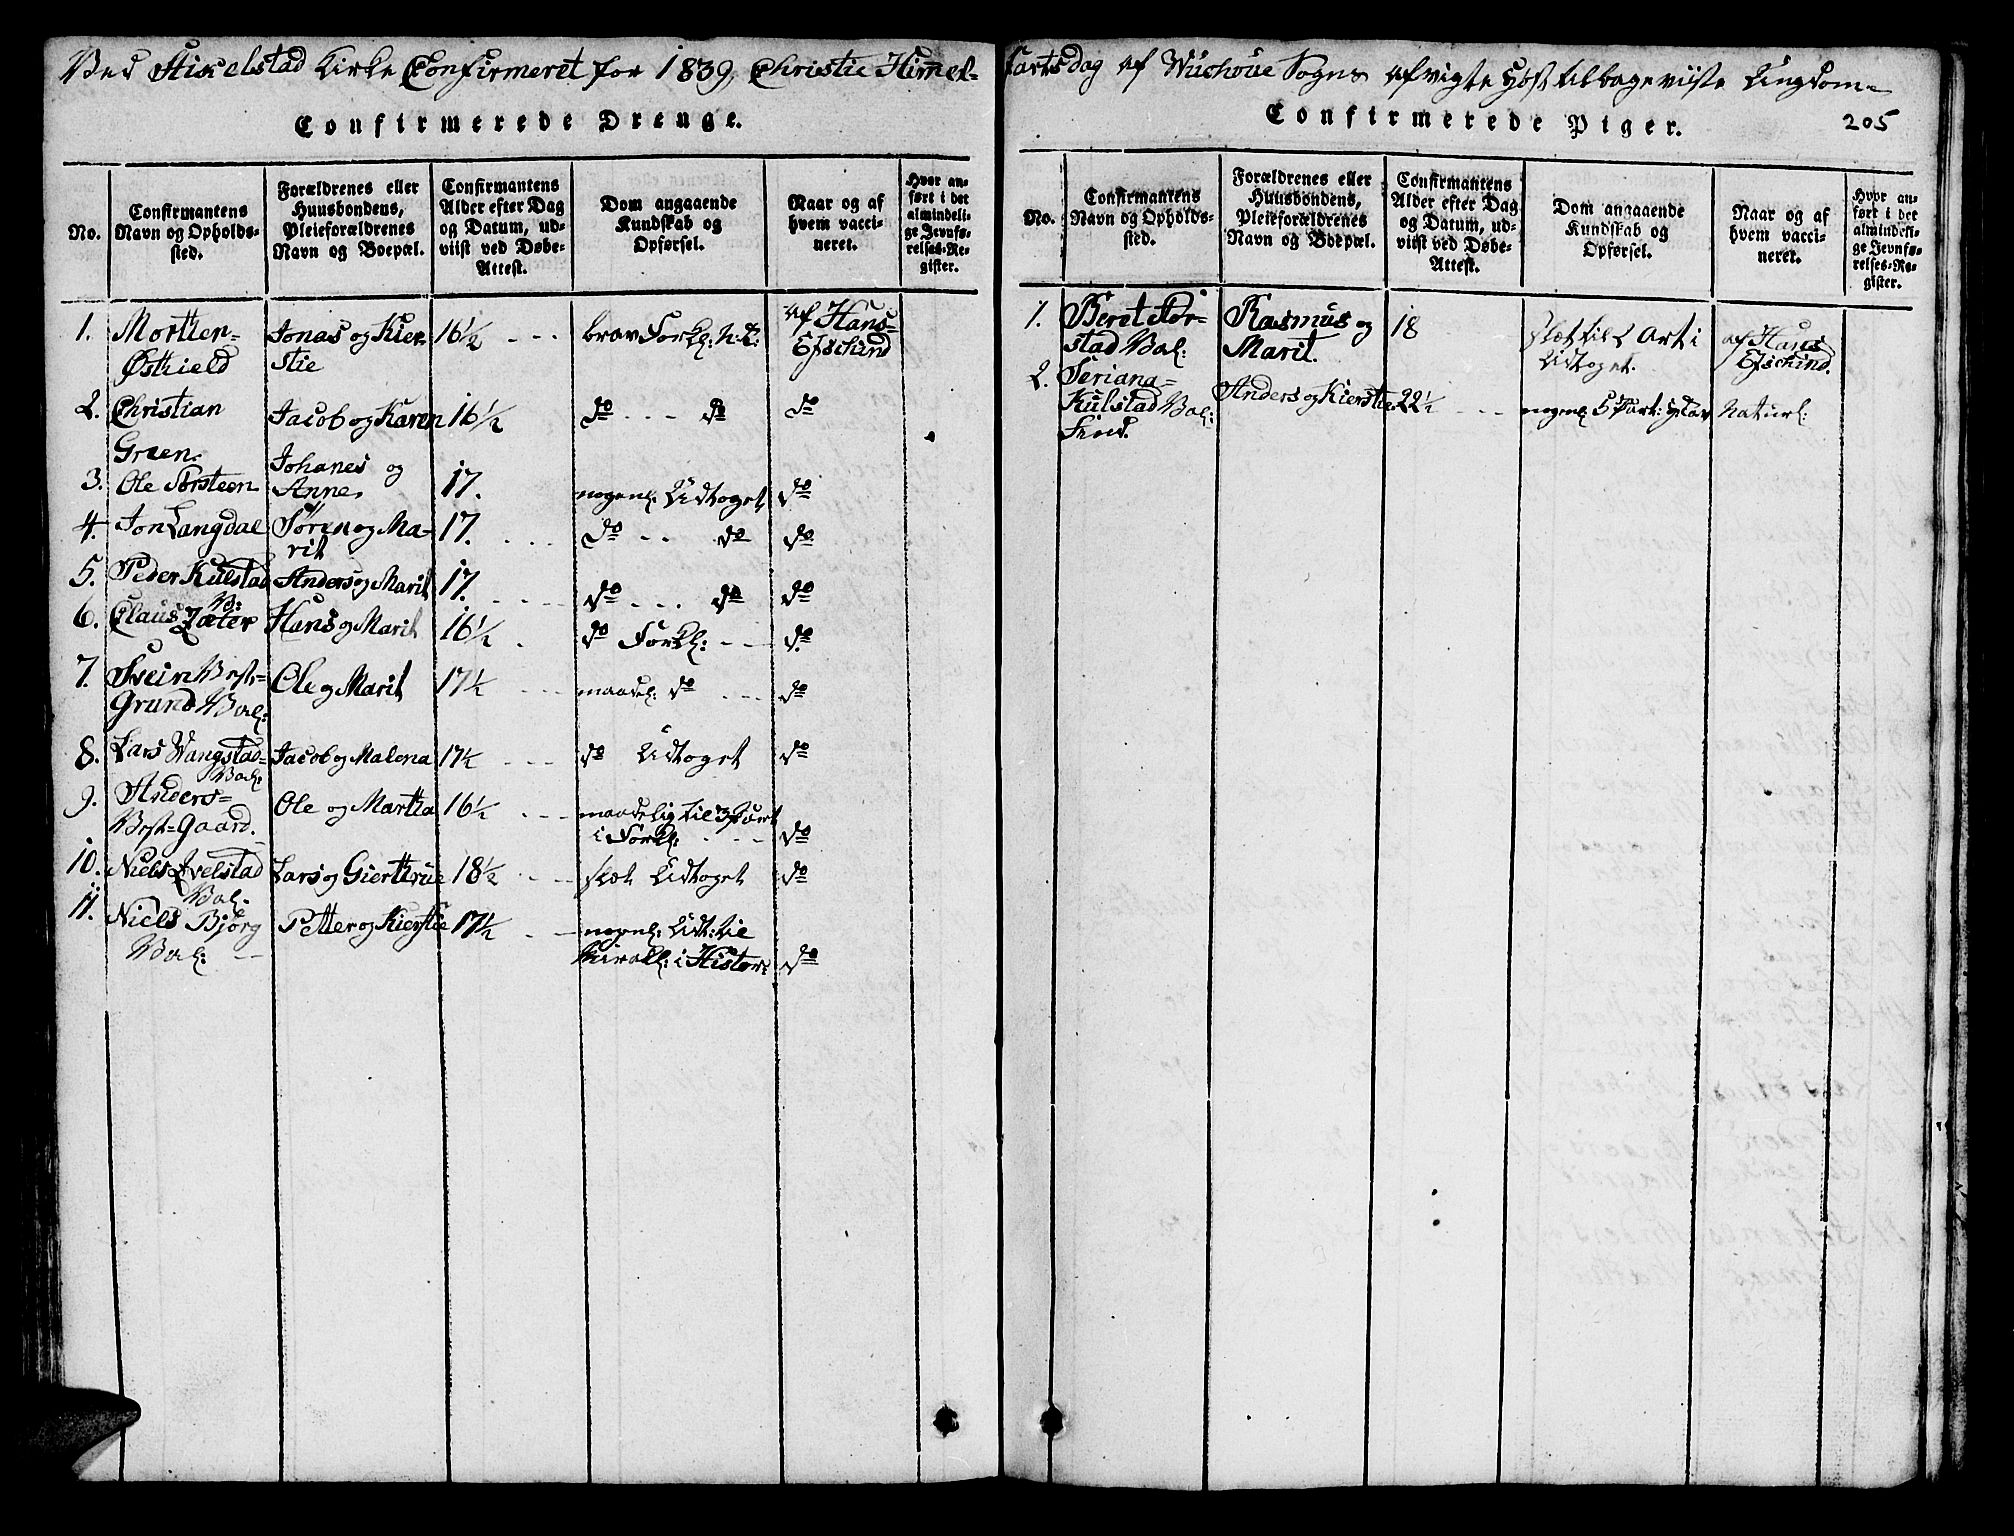 Ved Stixelstad Kirke Confirmeret for 1839, Christie Himmel-
fartsdag af Wuchoue Sogns afvigte Høst tilbageviiste Ungdom
205
Confirmerede Drenge.
No.
Confirmantens
Navn og Opholds-
sted.
Forældrenes eller
Huusbondens,
Pleieforældrenes
Navn og Boepæl.
Confirmantens
Alder efter Dag
og Datum, ud-
viist ved Døbe-
Attest.
Dom angaaende
Kundskab og
Opførsel.
Naar og af
hvem vacci-
neret.
Hvor an-
ført i det
almindeli-
ge Jevnfø-
relses-Re-
gister.
1. Morthen Jonas og Kier- 16½ brav Forkl: af Hans
Østhield stie Efskind
2. Christian Jacob og Karen 16½ do do do
Green.
3. Ole Torsteen Johanes og
Anne. 17. nogenl: Udtoget do
4. Jon Langdal Søren og Ma- 17. do do do
rit
5. Peder Kulstad Anders og Marit 17. do do do
6. Claus Zæter Hans og Marit 16½ do Forkl: do
7. Svein Vestr- Ole og Marit 17½ maadel: do do
Grund Val:
8. Lars Wangstad Jacob og Malena 17½ do Udtoget do
Val:
9. Anders- Ole og Martha 16½ maadelig til 3 Part
Vest-Gaard. i Forkl: do
10. Niels Qvelstad Lars og Gierthrue 18½ slet Udtoget do
Val.
11. Niels Bjørg Petter og Kierstie 17½ nogenl: Udt: til
Val: i Histor: do
Confirmerede Piger.
No.
Confirmantens
Navn og Opholds-
sted.
Forældrenes eller
Huusbondens,
Pleieforældrenes
Navn og Boepæl.
Confirmantens
Alder efter Dag
og Datum, ud-
viist ved Døbe-
Attest.
Dom angaaende
Kundskab og
Opførsel.
Naar og af
hvem vacci-
neret.
Hvor an-
ført i det
almindeli-
ge Jevnfø-
relses-Re-
gister.
1. Beret Aar- Rasmus og 18 slet til 2 Art i af Hans
stad Val: Marit. Udtoget. Efskind.
2. Seriana-
Kulstad Val: Anders og Kierstie 22½ nogenl: 5 Part: Naturl:
Find.